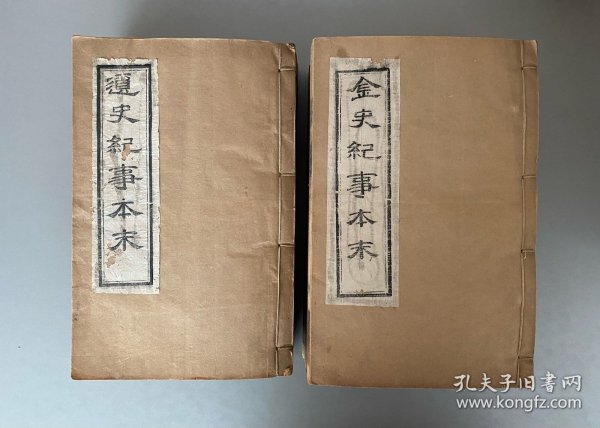 遼史紀事本末
金史紀事本末
孔夫子旧书网
www.kongfz.com